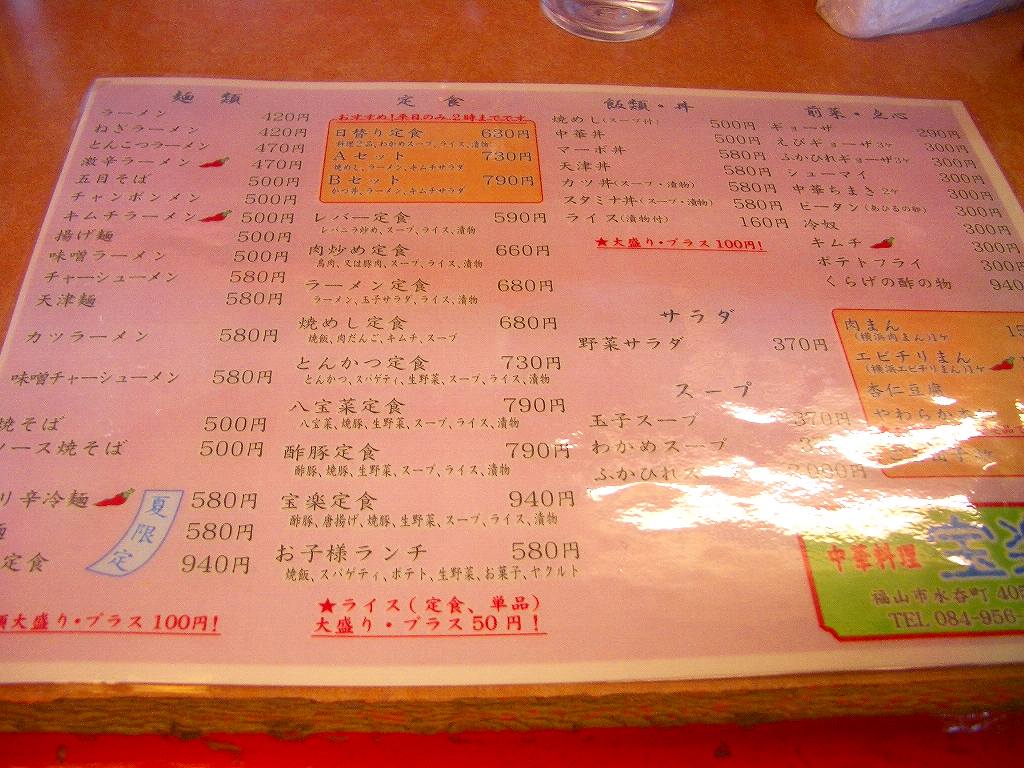 麺類
ラーメン 420円
ねぎラーメン 420円
とんこつラーメン 470円
激辛ラーメン 470円
五目そば 500円
チャンポンメン 500円
キムチラーメン 500円
揚げ麺 500円
味噌ラーメン 500円
チャーシューメン 580円
天津麺 580円
カツラーメン 580円
味噌チャーシューメン 580円
焼そば 500円
ース焼そば 500円
リ辛冷麺 580円
580円
定食 940円
夏限定
大盛り・プラス100円!
定食
おすすめ!平日のみ2時までです
日替り定食 630円
料理2品、わかめスープ、ライス、漬物
Aセット 730円
焼めし、ラーメン、キムチサラダ
Bセット 790円
かつ丼、ラーメン、キムチサラダ
レバー定食 590円
レバニラ炒め、スープ、ライス、漬物
肉炒め定食 660円
鳥肉、又は豚肉、スープ、ライス、漬物
ラーメン定食 680円
ラーメン、玉子サラダ、ライス、漬物
焼めし定食 680円
焼飯、肉だんご、キムチ、スープ
とんかつ定食 730円
とんかつ、スパゲティ、生野菜、スープ、ライス、漬物
八宝菜定食 790円
八宝菜、焼豚、生野菜、スープ、ライス、漬物
酢豚定食 790円
酢豚、焼豚、生野菜、スープ、ライス、漬物
宝楽定食 940円
酢豚、唐揚げ、焼豚、生野菜、スープ、ライス、漬物
お子様ランチ 580円
焼飯、スパゲティ、ポテト、生野菜、お菓子、ヤクルト
★ライス(定食、単品)
大盛り・プラス50円!
飯類・丼
焼めし(スープ付) 500円
中華丼 500円
マーボ丼 580円
天津丼 580円
カツ丼(スープ・漬物) 580円
スタミナ丼(スープ・漬物) 580円
ライス(漬物付) 160円
★大盛り・プラス100円!
サラダ
野菜サラダ 370円
スープ
玉子スープ 370円
わかめスープ
ふかひれス
前菜・点心
ギョーザ 290円
えびギョーザ3ケ 300円
ふかひれギョーザ3ケ 300円
シューマイ 300円
中華ちまき2ケ 300円
ピータン(あひるの卵) 300円
冷奴 300円
キムチ 300円
ポテトフライ 300円
くらげの酢の物 940
肉まん 15
(横浜肉まん)1ケ
エビチリまん
(横浜エビチリまん)1ケ
杏仁豆腐
やわらか
中華料理 宝
福山市水呑町 405
TEL 084-956-